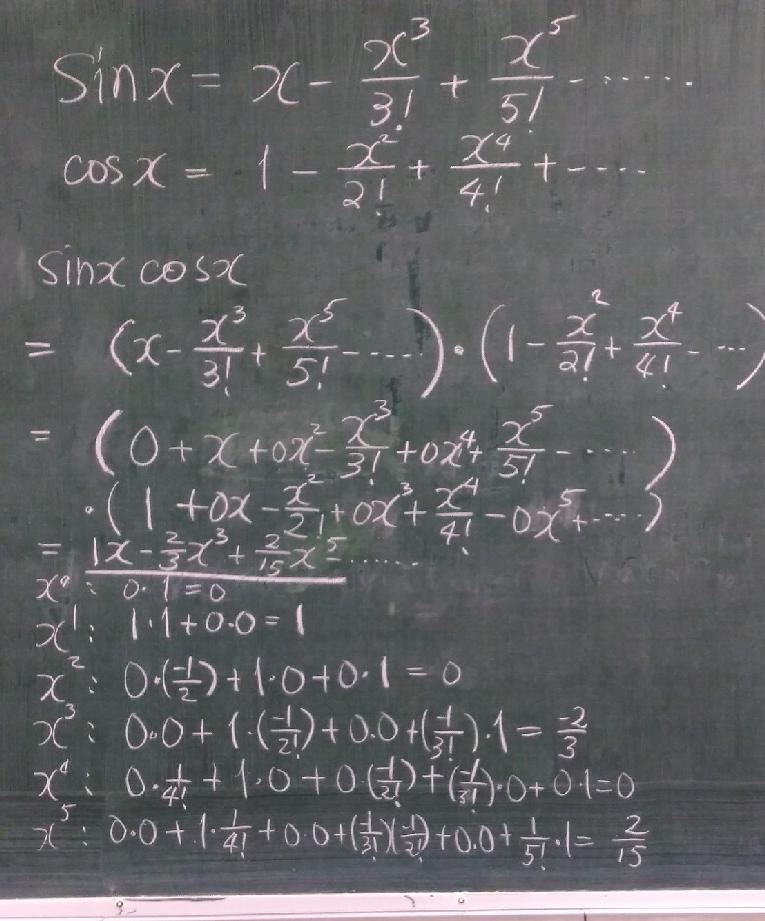 sin x = x - x³/3! + x⁵/5! - ......
cos x = 1 - x²/2! + x⁴/4! + - ....
sin x cos x
= (x - x³/3! + x⁵/5! - ....) · (1 - x²/2! + x⁴/4! - ...)
= (0 + x + 0x² - x³/3! + 0x⁴ + x⁵/5! - ....)
· (1 + 0x - x²/2! + 0x³ + x⁴/4! - 0x⁵ + ....)
= 1x - 2/3 x³ + 2/15 x⁵ - ......
x⁰: 0·1 = 0
x¹: 1·1 + 0·0 = 1
x²: 0·(-1/2) + 1·0 + 0·1 = 0
x³: 0·0 + 1·(-1/2!) + 0·0 + (-1/3!)·1 = -2/3
x⁴: 0·1/4! + 1·0 + 0·(-1/2!) + (-1/3!)·0 + 0·1 = 0
x⁵: 0·0 + 1·1/4! + 0·0 + (-1/3!)(-1/2!) + 0·0 + 1/5!·1 = 2/15